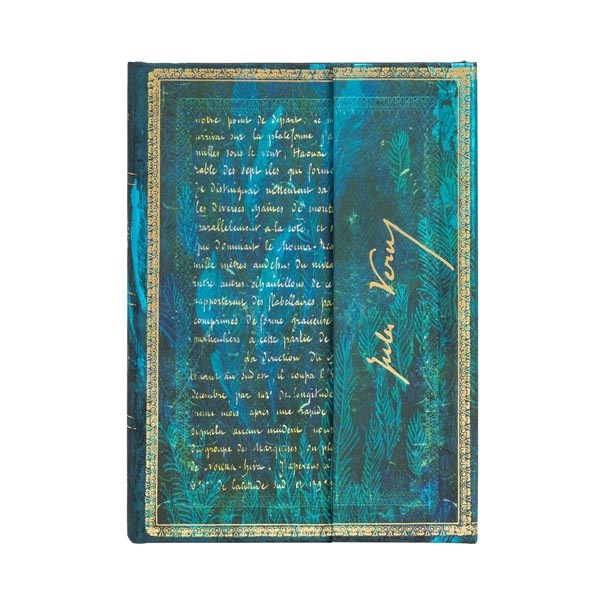 notre point de départ. Le m
arrivai sur la plateforme j'a
milles sous le vent, Haouaï
rable des sept îles qui forme
Je distinguai nettement sa
les diverses chaînes de mont
parallèlement à la côte, et s
que dominait le Mouna-Rea
mille mètres au dessus du nivea
Entre autres échantillons de ce
rapportèrent des flabellaires pa
comprimés de forme gracieuse
particuliers à cette partie de
La direction du
au sud-est il coupa l'É
décembre par 142° de longitud
même mois après une rapide
signala aucun incident nous
du groupe des Marquises
de Nouka-Hiva. J'aperçus à
de latitude sud et 139°
Jules Verne